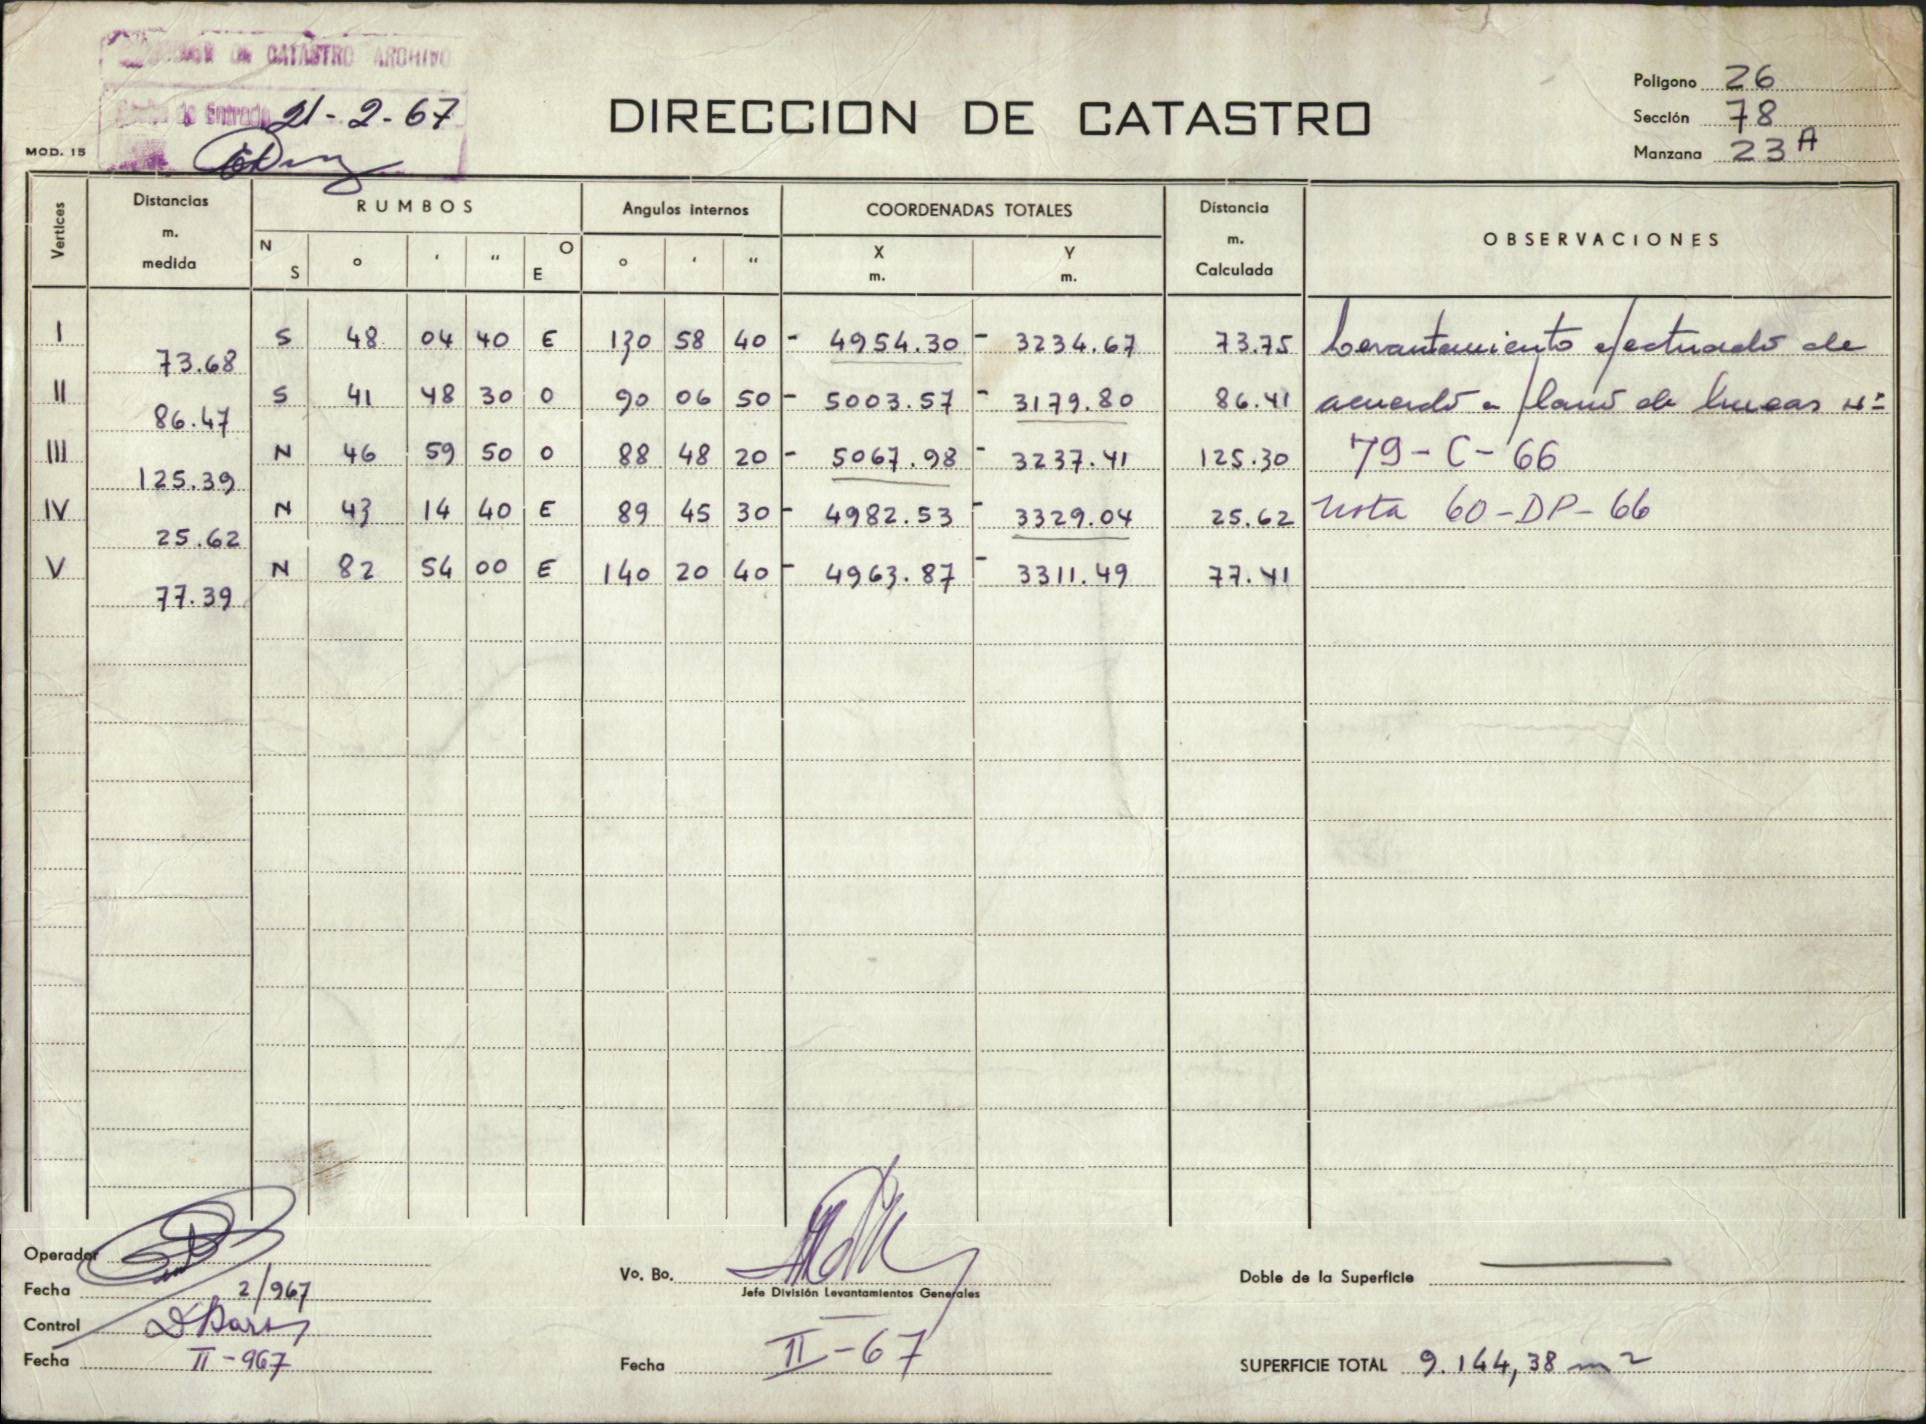 DE CATASTRO ARCHIVO
de Entrada 21-2-67
MOD. 15
DIRECCION DE CATASTRO
Poligono 26
Sección 78
Manzana 23 A
Vertices
Distancias m. medida
RUMBOS
N S ° ' " O E
Angulos internos
° ' "
COORDENADAS TOTALES
X m. Y m.
Distancia m. Calculada
OBSERVACIONES
I S 48 04 40 E 130 58 40 - 4954.30 - 3234.67 73.75 Levantamiento efectuado de
73.68
II S 41 48 30 O 90 06 50 - 5003.57 - 3179.80 86.41 acuerdo a plano de lineas Nº
86.47
III N 46 59 50 O 88 48 20 - 5067.98 - 3237.41 125.30 79-C-66
125.39
IV N 43 14 40 E 89 45 30 - 4982.53 - 3329.04 25.62 nota 60-DP-66
25.62
V N 82 54 00 E 140 20 40 - 4963.87 - 3311.49 77.41
77.39
Operador
Fecha 2/967
Control
Fecha II-967
Vo. Bo.
Jefe División Levantamientos Generales
Fecha II-67
Doble de la Superficie
SUPERFICIE TOTAL 9.144,38 m2